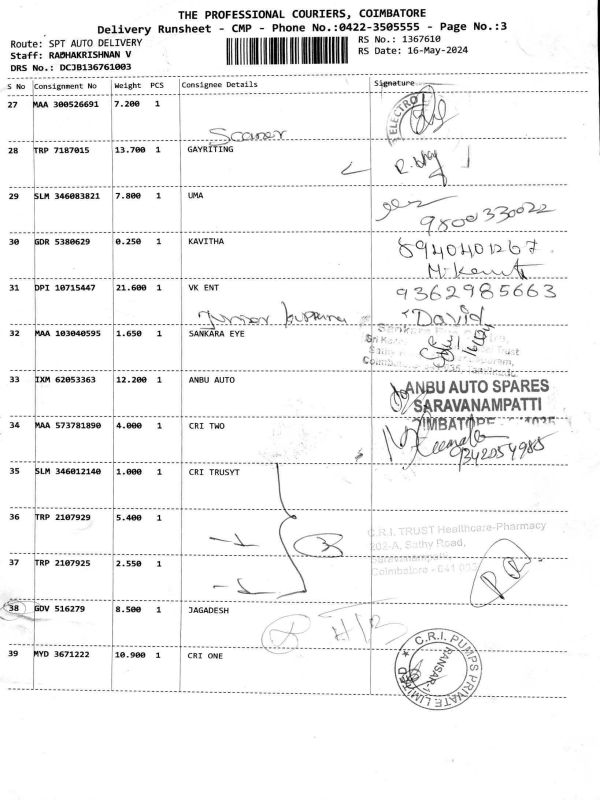 THE PROFESSIONAL COURIERS, COIMBATORE
Delivery Runsheet - CMP - Phone No.:0422-3505555 - Page No.:3
Route: SPT AUTO DELIVERY
RS No.: 1367610
Staff: RADHAKRISHNAN V
RS Date: 16-May-2024
DRS No.: DCJB136761003
S No Consignment No Weight PCS Consignee Details Signature
27 MAA 300526691 7.200 1
ELECTRO
28 TRP 7187015 13.700 1 GAYRITING
29 SLM 346083821 7.800 1 UMA
9800330022
30 GDR 5380629 0.250 1 KAVITHA
8940401267
31 DPI 10715447 21.600 1 VK ENT 9362985663
David
32 MAA 103040595 1.650 1 SANKARA EYE
33 IXM 62053363 12.200 1 ANBU AUTO
ANBU AUTO SPARES
SARAVANAMPATTI
34 MAA 573781890 4.000 1 CRI TWO
9342054985
35 SLM 346012140 1.000 1 CRI TRUSYT
36 TRP 2107929 5.400 1
C.R.I. TRUST Healthcare-Pharmacy
202-A, Sathy Road,
37 TRP 2107925 2.550 1
Coimbatore - 641 035
38 GDV 516279 8.500 1 JAGADESH
39 MYD 3671222 10.900 1 CRI ONE
C.R.I. PUMPS PRIVATE LIMITED